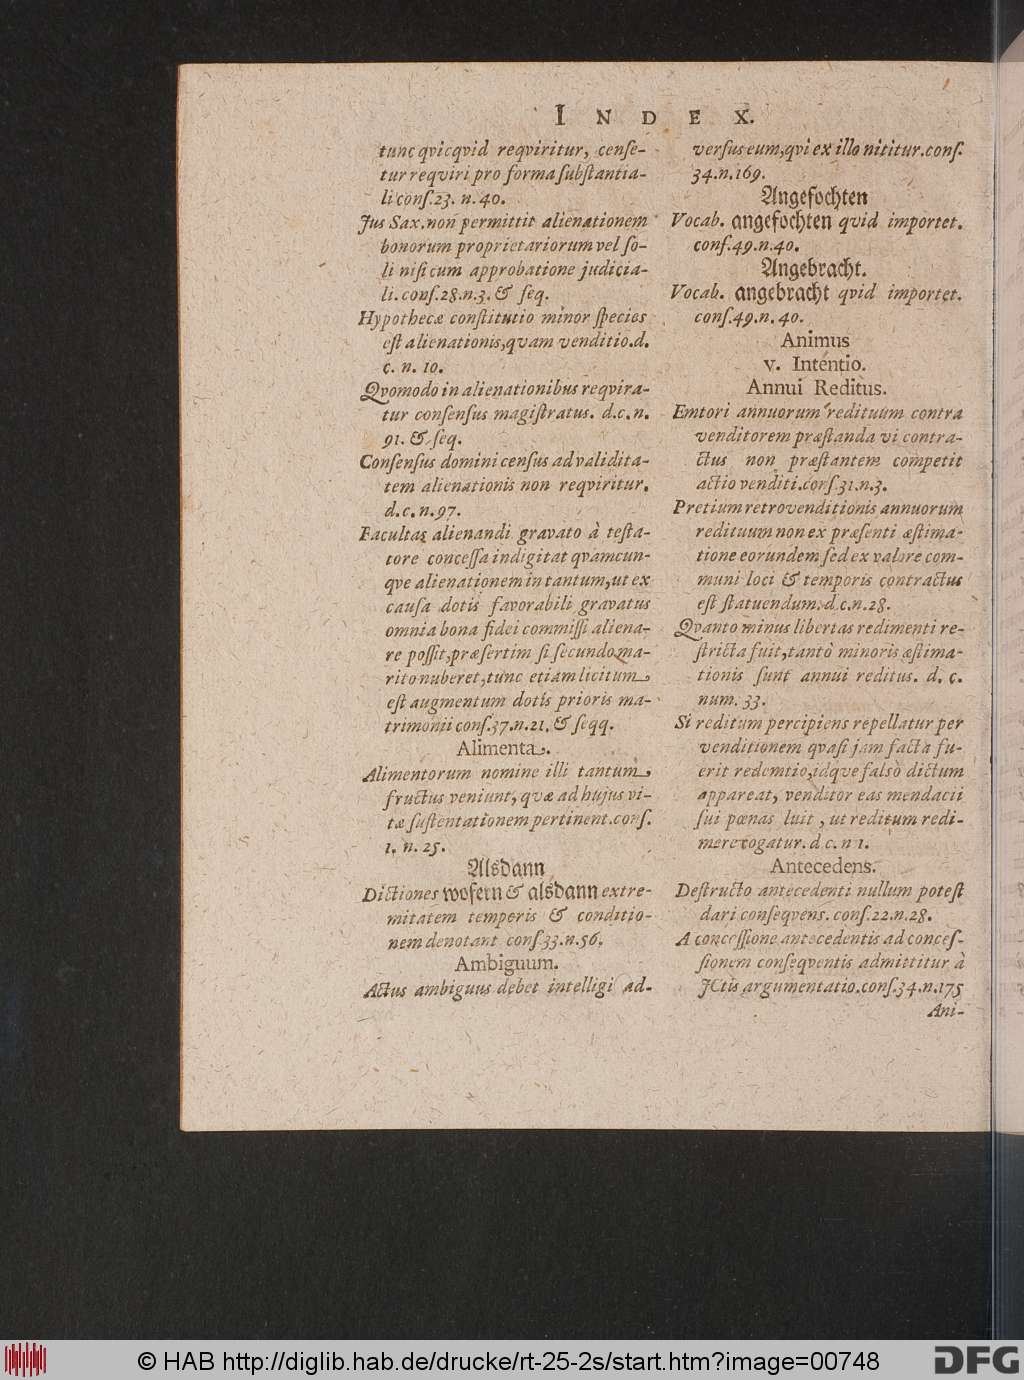 INDEX.
tunc qvicqvid reqviritur, cense-
tur reqviri pro forma substantia-
li cons. 23. n. 40.
Jus Sax. non permittit alienationem
bonorum proprietariorum vel so-
li nisi cum approbatione judicia-
li. cons. 28. n. 3. & seq.
Hypothecæ constitutio minor species
est alienationis, qvam venditio. d.
c. n. 10.
Qvomodo in alienationibus reqvira-
tur consensus magistratus. d. c. n.
91. & seq.
Consensus domini census ad valida-
tem alienationis non reqviritur.
d. c. n. 97.
Facultas alienandi gravato à testa-
tore concessa indigitat qvamcun-
qve alienationem in tantum, ut ex
causa dotis favorabili gravatus
omnia bona fidei commissi aliena-
re possit, præsertim si secundo ma-
rito nuberet, tunc etiam licitum
est augmentum dotis prioris ma-
trimonii cons. 37. n. 21. & seqq.
Alimenta.
Alimentorum nomine illi tantum
fructus veniunt, qvæ ad hujus vi-
tæ sustentationem pertinent. cons.
1. n. 25.
Alsdann
Dictiones wofern & alsdann extre-
mitatem temporis & conditio-
nem denotant cons. 33. n. 56.
Ambiguum.
Actus ambiguus debet intelligi ad-
versus eum, qvi ex illo nititur. cons.
34. n. 169.
Angefochten
Vocab. angefochten qvid importet.
cons. 49. n. 40.
Angebracht.
Vocab. angebracht qvid importet.
cons. 49. n. 40.
Animus
v. Intentio.
Annui Reditus.
Emtori annuorum redituum contra
venditorem præstanda vi contra-
ctus non præstantem competit
actio venditi. cons. 31. n. 3.
Pretium retrovenditionis annuorum
redituum non ex præsenti æstima-
tione eorundem sed ex valore com-
muni loci & temporis contractus
est statuendum. d. c. n. 28.
Qvanto minus libertas redimenti re-
stricta fuit, tantò minoris æstima-
tionis sunt annui reditus. d. c.
num. 33.
Si reditum percipiens repellatur per
venditionem qvasi jam facta fu-
erit redemtio, idqve falsò dictum
appareat, venditor eas mendacii
sui pœnas luit, ut reditum redi-
mere cogatur. d. c. n 1.
Antecedens.
Destructo antecedenti nullum potest
dari conseqvens. cons. 22. n. 28.
A concessione antecedentis ad conces-
sionem conseqventis admittitur à
JCtis argumentatio. cons. 34. n. 175
Ani-
© HAB http://diglib.hab.de/drucke/rt-25-2s/start.htm?image=00748
DFG